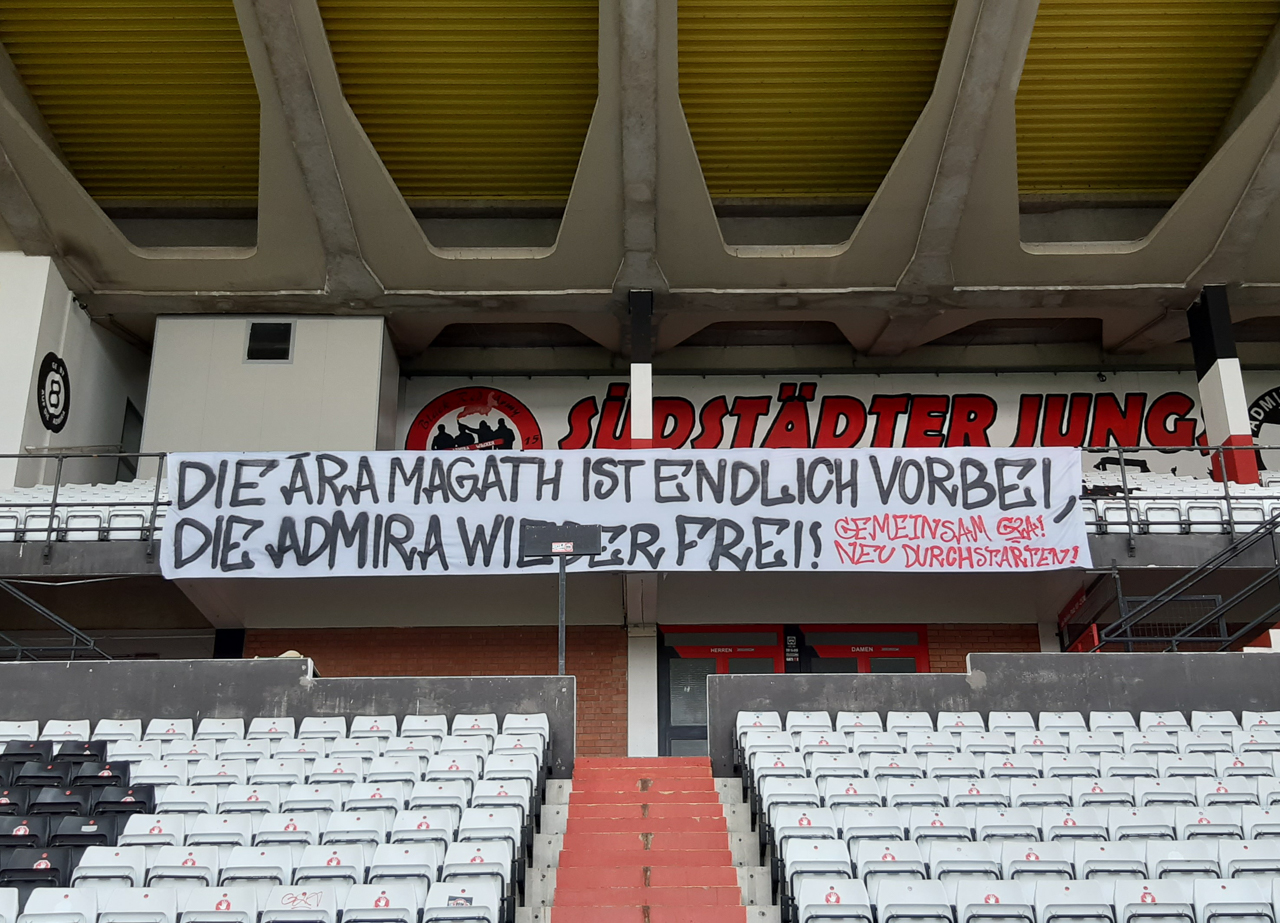 SÜDSTÄDTER JUNG
15
DIE ÄRA MAGATH IST ENDLICH VORBEI,
DIE ADMIRA WIEDER FREI!
GEMEINSAM
NEU DURCHSTARTEN!
HERREN
DAMEN